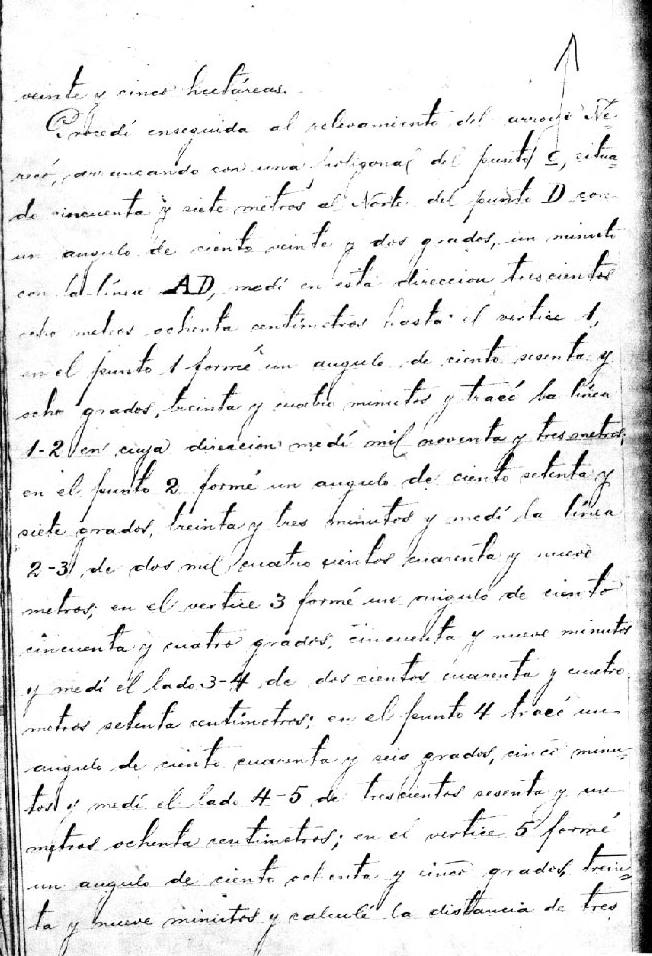 veinte y cinco hectáreas.
Procedí enseguida al relevamiento del arroyo Ñe-
recó, arrancando con una poligonal del punto C, situa-
do cincuenta y siete metros al Norte del punto D con
un angulo de ciento veinte y dos grados, un minuto
con la línea AD, medí en esta direccion, trescientos
ocho metros ochenta centímetros hasta el vertice 1,
en el punto 1 formé un angulo de ciento sesenta y
ocho grados, treinta y cuatro minutos y tracé la línea
1-2 en cuya direccion medí mil noventa y tres metros;
en el punto 2 formé un angulo de ciento setenta y
siete grados, treinta y tres minutos y medí la línea
2-3 de dos mil cuatro cientos cuarenta y nueve
metros; en el vertice 3 formé un angulo de ciento
cincuenta y cuatro grados, cincuenta y nueve minutos
y medí el lado 3-4 de dos cientos cuarenta y cuatro
metros setenta centimetros; en el punto 4 tracé un
angulo de ciento cuarenta y seis grados, cinco minu-
tos y medí el lado 4-5 de trescientos sesenta y un
metros ochenta centimetros; en el vertice 5 formé
un angulo de ciento ochenta y cinco grados, trein-
ta y nueve minutos y calculé la distancia de tres